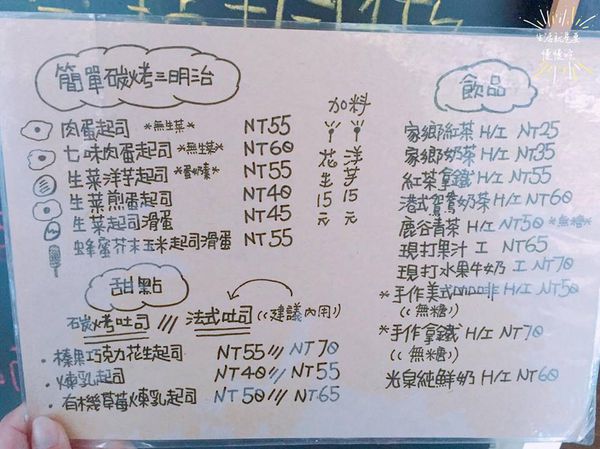 生活就是要
慢慢吟
簡單碳烤三明治
肉蛋起司 *無生菜* NT55
七味肉蛋起司 *無生菜* NT60
生菜洋芋起司 NT55
生菜煎蛋起司 NT40
生菜起司滑蛋 NT45
蜂蜜芥末玉米起司滑蛋 NT55
加料
花生 15元
洋芋 15元
甜點
碳烤吐司 /// 法式吐司 ((建議內用))
・榛果巧克力花生起司 NT55 /// NT70
・煉乳起司 NT40 /// NT55
・有機草莓煉乳起司 NT50 /// NT65
飲品
家鄉紅茶 H/I NT25
家鄉奶茶 H/I NT35
紅茶拿鐵 H/I NT55
港式鴛鴦奶茶 H/I NT60
鹿谷青茶 H/I NT50 *無糖*
現打果汁 I NT65
現打水果牛奶 I NT70
*手作美式咖啡 H/I NT50
((無糖))
*手作拿鐵 H/I NT70
((無糖))
光泉純鮮奶 H/I NT60